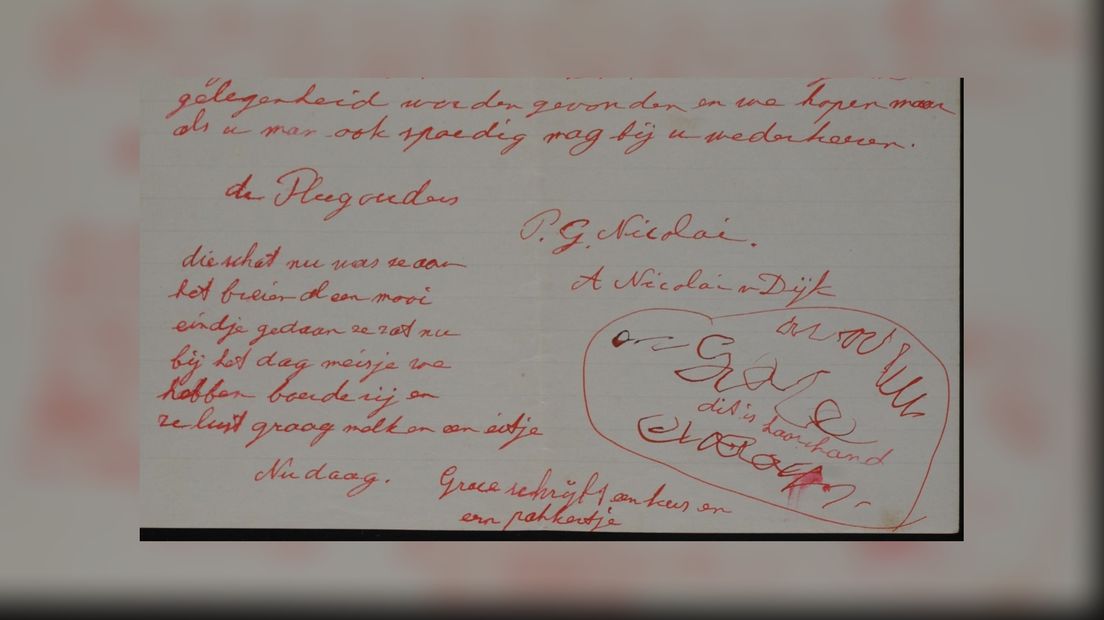 gelegenheid worden gevonden en we hopen maar
als u man ook spoedig mag bij u wederkeeren.
de Pleegouders
P. G. Nicolai.
A Nicolai v Dijk
die schat nu was ze aan
het breien al een mooi
eindje gedaan ze zat nu
bij het dag meisje we
hebben boerderij en
ze lust graag melk en een eitje
Nu daag.
Greee schrijft een kus en
een pakkertje
dit is haar hand